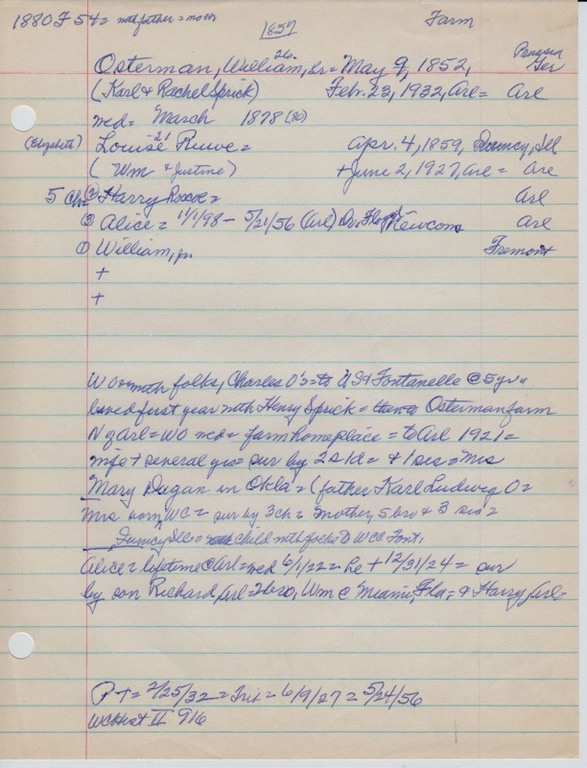 1880 F 54 = with father = no occ
1857
Farm
26
Prussia
Osterman, William, Sr = May 9, 1852, Ger
(Karl & Rachel Sprick) Feb. 23, 1932, Arl = Arl
med = March 1878 (80)
21
(Elizabeth) Louise Ruwe = Apr. 4, 1859, Quincy, Ill
(Wm & Justine) + June 2, 1927, Arl = Arl
5 Ch = ② Harry = Arl
③ Alice = 11/1/98 - 5/21/56 (Arl) Dr. Floyd Newcom Arl
① William, jr. Fremont
+
+
W O with folks, Charles O's = to USA Fontanelle @ 5 yr =
lived first year with Henry Sprick = Osterman farm
N of Arl = WO med = farm home place = to Arl 1921 =
wife + several yrs = sur by 2s 1d = & 1 sis = Mrs
Mary Dugan in Okla = (father Karl Ludwig O =
Mrs born WC = sur by 3 ch = mother, 5 bro & 3 sis =
Quincy Ill = child with folks to WC Font.
Alice = lifetime @ Arl = med 6/1/22 = he + 12/31/24 = sur
by son Richard, Arl = 2 bro, Wm @ Miami, Fla = & Harry, Arl =
P + = 2/25/32 = Tri = 6/9/27 = 5/24/56
WC Hist II 916